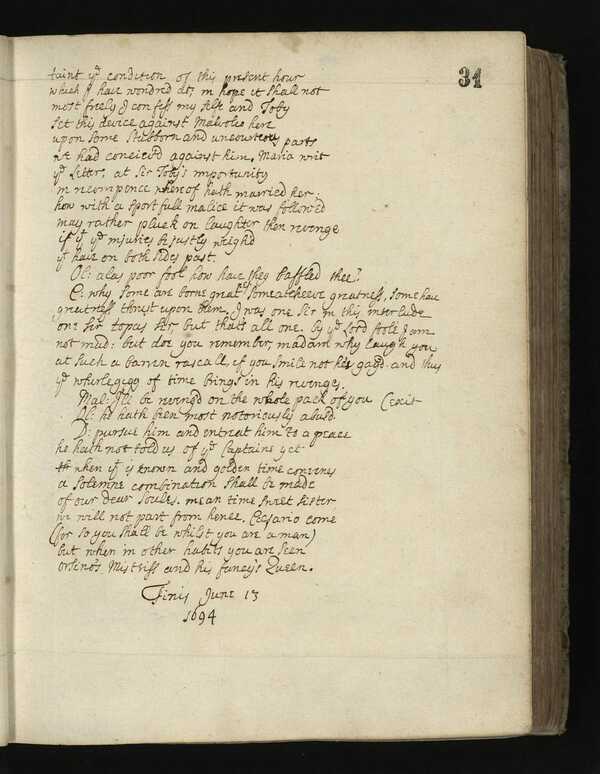 31
taint yᵉ condition of this present hour
which I have wondred att, in hope it shall not
most freely I confess my self and Toby
set this device against Malvolio here
upon some stubborn and uncourteous parts
we had conceiv'd against him. Maria writ
yᵉ letter, at Sir Toby's importunity
in recompence whereof hath married her:
how with a sportfull malice it was follow'd
may rather pluck on laughter then revenge
if yᵗ yᵉ injuries be justly weigh'd
yᵗ have on both sides past.
Ol: alas poor fool how have they baffled thee?
C: why some are borne great, some atcheeve greatness, some have
greatness thrust upon them, I was one Sir in this interlude
one Sir topas Sir, but that's all one. by yᵉ Lord foole I am
not mad: but doe you remember, madam why laugh you
at such a barren rascall, if you smile not he's gagd. and thus
yᵉ whirlegigg of time brings in his revenges.
Mal: I'le be reveng'd on the whole pack of you (exit
Ol: he hath been most notoriously abusd.
D: pursue him and entreat him to a peace
he hath not told us of yᵉ Captaine yet
when yᵗ is known and golden time convenes
a solemne combination shall be made
of our dear soules. mean time sweet sister
we will not part from hence. Cesario come
(for so you shall be whilst you are a man)
but when in other habits you are seen
orsino's Mistriss and his fancy's Queen.
Finis June 13
1694